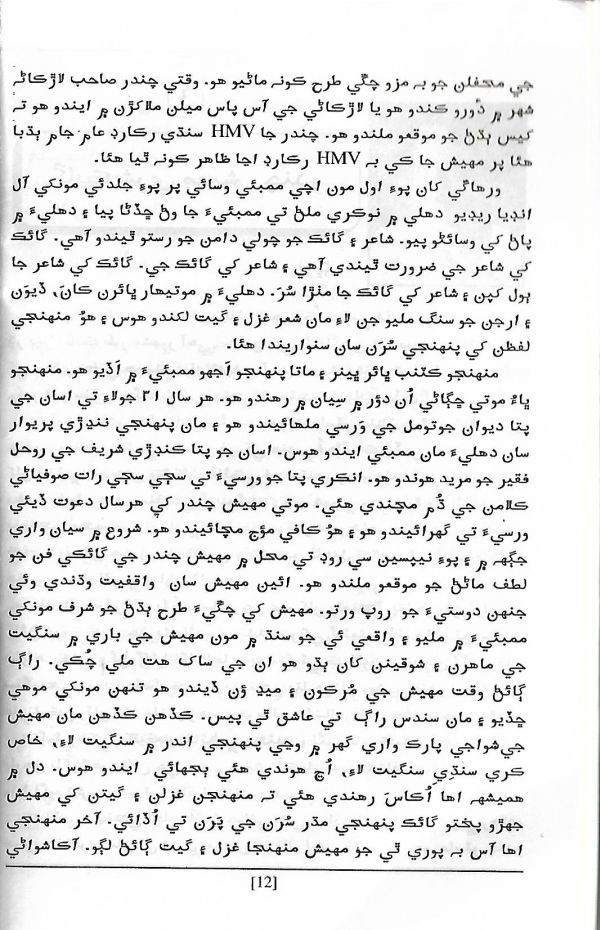 جي محفلن جو بہ مزو چڱي طرح کونہ ماڻيو هو. وقتي چندر صاحب لاڙڪاڻہ
شهر ۾ دؤرو ڪندو هو يا لاڙڪاڻي جي آس پاس ميلن ملاکڙن ۾ ايندو هو تہ
کيس ٻڌڻ جو موقعو ملندو هو. چندر جا HMV سنڌي رڪارڊ عام جام ٻڌبا
هئا پر مهيش جا ڪي بہ HMV رڪارڊ اڃا ظاهر ڪونہ ٿيا هئا.
ورهاڱي کان پوءِ اول مون اچي ممبئي وسائي پر پوءِ جلدئي مونکي آل
انڊيا ريڊيو دهلي ۾ نوڪري ملڻ تي ممبئيءَ جا وڻ ڇڏڻا پيا ۽ دهليءَ ۾
پاڻ کي وسائڻو پيو. شاعر ۽ ڳائڪ جو چولي دامن جو رستو ٿيندو آهي. ڳائڪ
کي شاعر جي ضرورت ٿيندي آهي ۽ شاعر کي ڳائڪ جي. ڳائڪ کي شاعر جا
ٻول کپن ۽ شاعر کي ڳائڪ جا مٺڙا سُرَ. دهليءَ ۾ موتيهار ڀائرن کانَ، ڏيوَن
۽ ارجن جو سنگ مليو جن لاءِ مان شعر غزل ۽ گيت لکندو هوس ۽ هوُ منهنجي
لفظن کي پنهنجي سُرَن سان سنواريندا هئا.
منهنجو ڪٽنب ڀائر ڀينر ۽ ماتا پنهنجو اَجهو ممبئيءَ ۾ اَڏيو هو. منهنجو
ڀاءُ موتي ڇڳاڻي اُن دؤر ۾ سِيان ۾ رهندو هو. هر سال ۳۱ جولاءِ تي اسان جي
پتا ديوان جوتومل جي وَرسي ملهائيندو هو ۽ مان پنهنجي ننڍڙي پريوار
سان دهليءَ مان ممبئي ايندو هوس. اسان جو پتا ڪنڊڙي شريف جي روحل
فقير جو مريد هوندو هو. انڪري پتا جو ورسيءَ تي سڄي سڄي رات صوفياڻي
ڪلامن جي ڌُم مچندي هئي. موتي مهيش چندر کي هرسال دعوت ڏيئي
ورسيءَ تي گهرائيندو هو ۽ هوُ ڪافي مؤج مچائيندو هو. شروع ۾ سيان واري
جڳهہ ۾ ۽ پوءِ نيپيئن سي روڊ تي محل ۾ مهيش چندر جي ڳائڪي فن جو
لطف ماڻڻ جو موقعو ملندو هو. ائين مهيش سان واقفيت وڌندي وئي
جنهن دوستيءَ جو روپ ورتو. مهيش کي چڱيءَ طرح ٻڌڻ جو شرف مونکي
ممبئيءَ ۾ مليو ۽ واقعي ئي جو سنڌ ۾ مون مهيش جي باري ۾ سنگيت
جي ماهرن ۽ شوقينن کان ٻڌو هو ان جي ساک هت ملي چُڪي. راڳ
ڳائڻ وقت مهيش جي مُرڪون ۽ ميڊ وَن ڏيندو هو تنهن مونکي موهي
ڇڏيو ۽ مان سندس راڳ تي عاشق ٿي پيس. ڪڏهن ڪڏهن مان مهيش
جي شواجي پارڪ واري گهر ۾ وڃي پنهنجي اندر ۾ سنگيت لاءِ، خاص
ڪري سنڌي سنگيت لاءِ، اُڃ هوندي هئي ٻجهائي ايندو هوس. دل ۾
هميشہ اها اُڪاسَ رهندي هئي تہ منهنجن غزلن ۽ گيتن کي مهيش
جهڙو پختو ڳائڪ پنهنجي مڌر سُرَن جي پَرَن تي اُڏائي. آخر منهنجي
اها آس بہ پوري ٿي جو مهيش منهنجا غزل ۽ گيت ڳائڻ لڳو. آڪاشواڻي
[12]